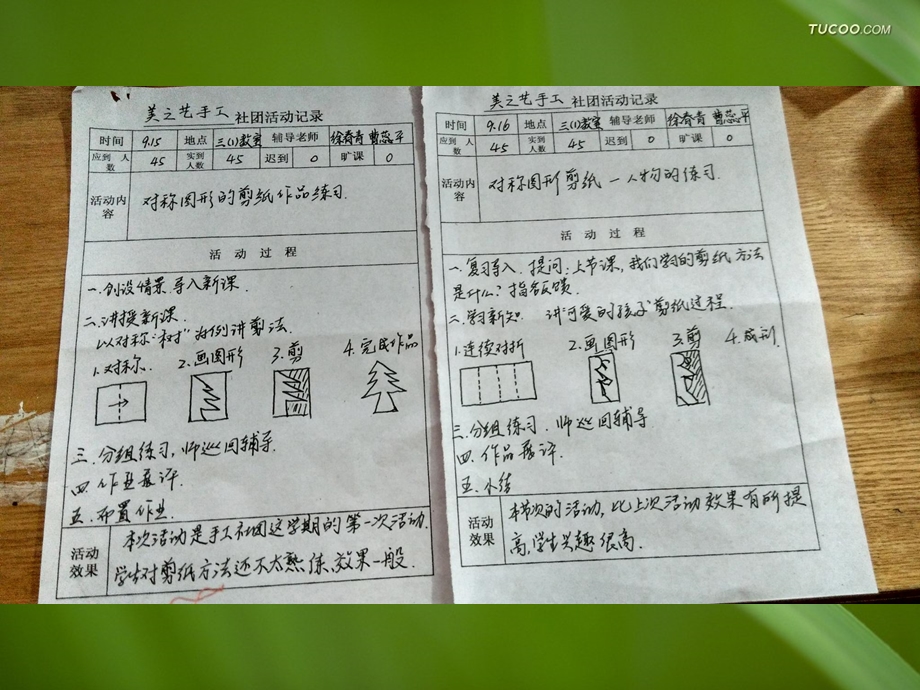 TUCOO.COM
美之艺手工 社团活动记录
时间 9.15 地点 三(1)教室 辅导老师 徐春青 曹蕊平
应到人数 45 实到人数 45 迟到 0 旷课 0
活动内容 对称图形的剪纸作品练习.
活动过程
一.创设情景.导入新课.
二.讲授新课.
以对称"树"为例讲剪法.
1.对称. 2.画图形 3.剪 4.完成作品
三.分组练习,师巡回辅导.
四.作业展评.
五.布置作业.
活动效果 本次活动是手工社团这学期的第一次活动.
学生对剪纸方法还不太熟练,效果一般.
美之艺手工 社团活动记录
时间 9.16 地点 三(1)教室 辅导老师 徐春青 曹蕊平
应到人数 45 实到人数 45 迟到 0 旷课 0
活动内容 对称图形剪纸一人物的练习.
活动过程
一.复习导入.提问:上节课,我们学习的剪纸方法
是什么?指名反馈.
二.学习新知 讲可爱的孩子剪纸过程.
1.连续对折 2.画图形 3.剪 4.成形
三.分组练习.师巡回辅导
四.作品展评.
五.小结
活动效果 本节次的活动,比上次活动效果有所提
高,学生兴趣很高.